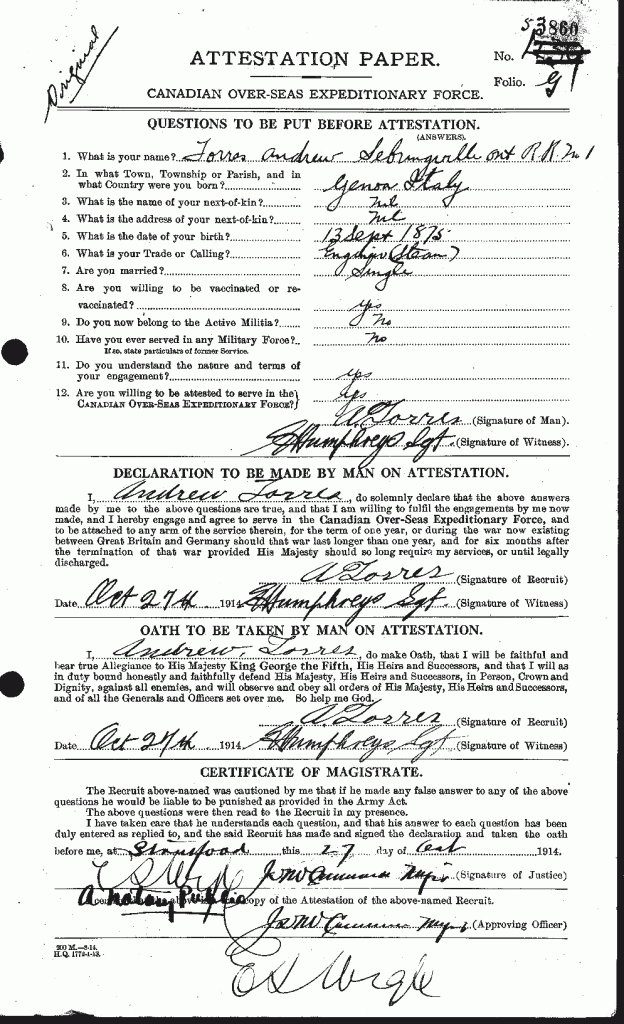 Original
53860
ATTESTATION PAPER.
No.
Folio.
CANADIAN OVER-SEAS EXPEDITIONARY FORCE.
QUESTIONS TO BE PUT BEFORE ATTESTATION.
(ANSWERS).
1. What is your name? Torres Andrew Sebringville ont R.R. No 1
2. In what Town, Township or Parish, and in
what Country were you born? Genoa Italy
3. What is the name of your next-of-kin? Nil
4. What is the address of your next-of-kin? Nil
5. What is the date of your birth? 13 Sept 1875
6. What is your Trade or Calling? Engineer (Steam)
7. Are you married? Single
8. Are you willing to be vaccinated or re-
vaccinated? yes
9. Do you now belong to the Active Militia? No
10. Have you ever served in any Military Force? no
If so, state particulars of former Service.
11. Do you understand the nature and terms of
your engagement? yes
12. Are you willing to be attested to serve in the
CANADIAN OVER-SEAS EXPEDITIONARY FORCE? yes
A Torres (Signature of Man).
Humphreys Sgt. (Signature of Witness).
DECLARATION TO BE MADE BY MAN ON ATTESTATION.
I, Andrew Torres, do solemnly declare that the above answers
made by me to the above questions are true, and that I am willing to fulfil the engagements by me now
made, and I hereby engage and agree to serve in the Canadian Over-Seas Expeditionary Force, and
to be attached to any arm of the service therein, for the term of one year, or during the war now existing
between Great Britain and Germany should that war last longer than one year, and for six months after
the termination of that war provided His Majesty should so long require my services, or until legally
discharged.
A Torres (Signature of Recruit)
Date Oct 27th 1914. Humphreys Sgt. (Signature of Witness)
OATH TO BE TAKEN BY MAN ON ATTESTATION.
I, Andrew Torres, do make Oath, that I will be faithful and
bear true Allegiance to His Majesty King George the Fifth, His Heirs and Successors, and that I will as
in duty bound honestly and faithfully defend His Majesty, His Heirs and Successors, in Person, Crown and
Dignity, against all enemies, and will observe and obey all orders of His Majesty, His Heirs and Successors,
and of all the Generals and Officers set over me. So help me God.
A. Torres (Signature of Recruit)
Date Oct 27th 1914. Humphreys Sgt. (Signature of Witness)
CERTIFICATE OF MAGISTRATE.
The Recruit above-named was cautioned by me that if he made any false answer to any of the above
questions he would be liable to be punished as provided in the Army Act.
The above questions were then read to the Recruit in my presence.
I have taken care that he understands each question, and that his answer to each question has been
duly entered as replied to, and the said Recruit has made and signed the declaration and taken the oath
before me, at Stratford this 27 day of Oct 1914.
(Signature of Justice)
A Notary Public
copy of the Attestation of the above-named Recruit.
(Approving Officer)
200 M.—8-14.
H.Q. 1772-1-13.